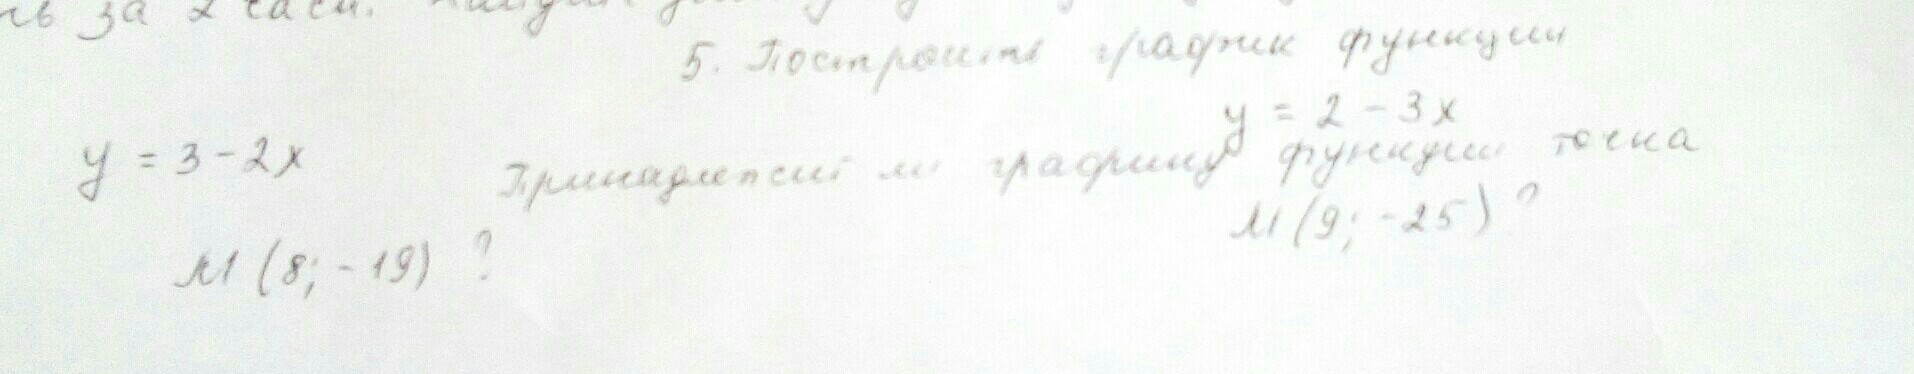 за 2 часа.
5. Построить график функции
y = 3 - 2x
y = 2 - 3x
Принадлежит ли графику функции точка
M (8; -19) ?
M (9; -25) ?